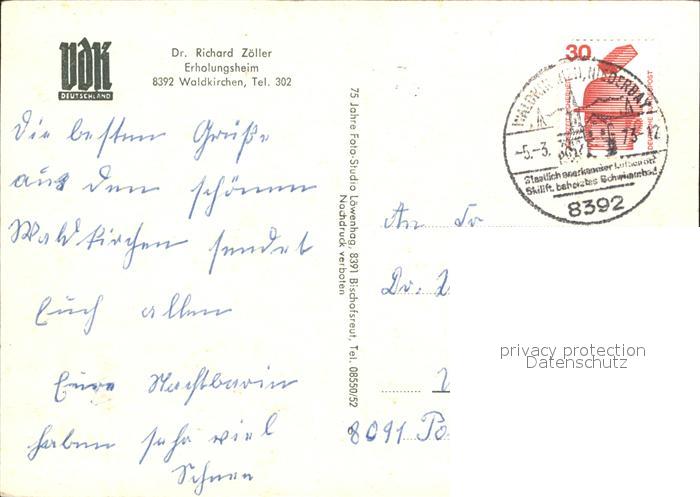 VdK
DEUTSCHLAND
Dr. Richard Zöller
Erholungsheim
8392 Waldkirchen, Tel. 302
Die besten Grüße
aus dem schönen
Waldkirchen sendet
Euch allen
Eure Nachbarin
haben sehr viel
Schnee
75 Jahre Foto-Studio Löwenhag, 8391 Bischofsreut, Tel. 08550/52
Nachdruck verboten
30
WALDKIRCHEN, NIEDERBAY.
-5.-3. 73-12
Staatlich anerkannter Luftkurort
Skilift, beheiztes Schwimmbad
8392
An
Dr.
8091
privacy protection
Datenschutz